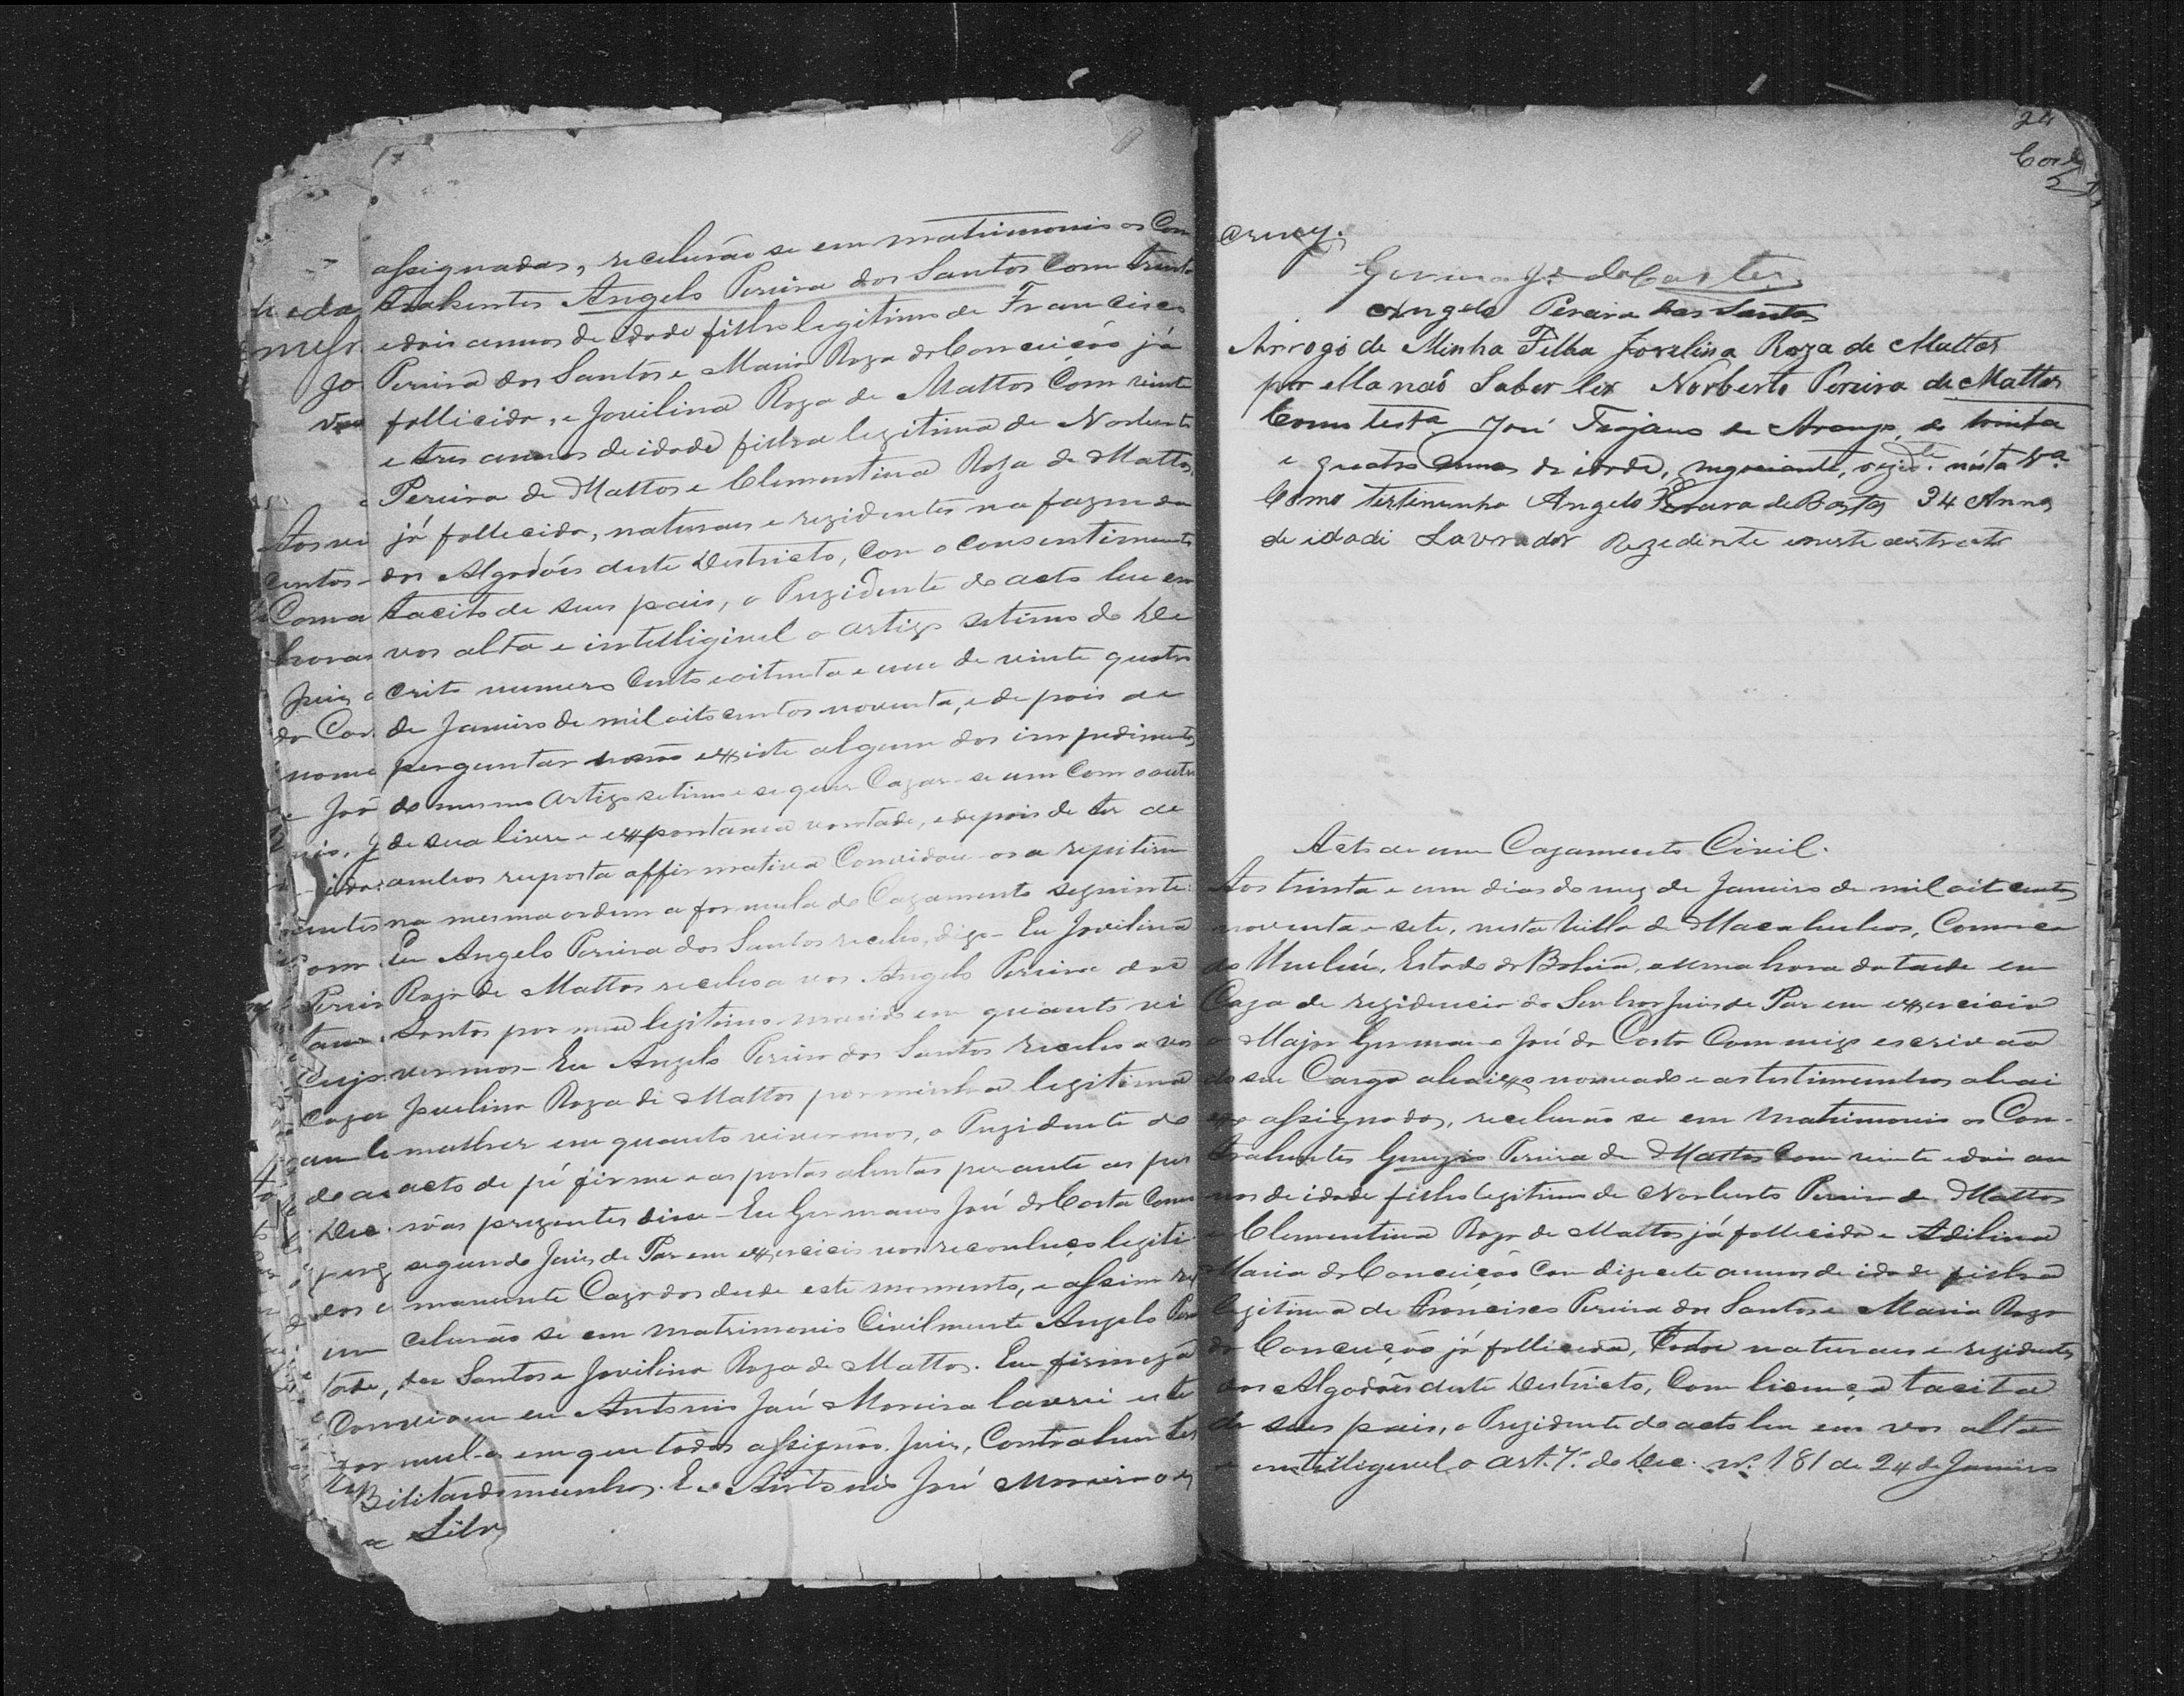 assignadas, receberão se em matrimonio os Con
trahentes Angelo Pereira dos Santos com trinta
e dois annos de idade filho legitimo de Francisco
Pereira dos Santos e Maria Roza da Conceição já
fallicida, e Jovilina Roza de Mattos com vinte
e tres annos de idade filha legitima de Norberto
Pereira de Mattos e Clementina Roza de Mattos
já fallecida, naturaes e rezidentes na fazenda
dos Algodões deste Destricto, com o consentimento
tacito de seus pais, o Prezidente do acto leu em
vos alta e intelligivel o artigo setimo do De
crito numero cento e oitenta e um de vinte quatro
de Janeiro de mil oito centos noventa, e depois de
perguntar se não existe algum dos impedimentos
do mesmo artigo setimo e se quer Cazar-se um com o outro
de sua livre e expontanea vontade, e depois de ter de
ambos reposta affirmativa Convidou os a repitirem
na mesma ordem a formula do Cazamento seguinte:
Eu Angelo Pereira dos Santos recebo, digo - Eu Jovilina
Roza de Mattos recebo a vos Angelo Pereira dos
Santos por meu legitimo marido em quanto vi
vermos - Eu Angelo Pereira dos Santos recebo a vos
Jovilina Roza de Mattos por minha legitima
mulher em quanto vivermos, o Prezidente do
acto de pé firme e as portas abertas perante as pes
sôas prezentes disse - Eu Germano José da Costa como
segundo Juis de Par em exercicio vos reconheço legiti
mamente Cazados desde este momento, e assim re
ceberão se em matrimonio Civilmente Angelo Pere
dos Santos e Jovilina Roza de Mattos. Em firmeza
eu Antonio José Moreira lavrei este
em que todos assignão. Juis, Contrahentes
munhas. Eu Antonio José Moreira
Silva
24
escrevy.
Germano Jé da Costa
Angelo Pereira dos Santos
Arrogo de Minha Filha Jovelina Roza de Mattos
por ella naõ Saber ler Norberto Pereira de Mattos
Como testa José Trajano de Araujo, de trinta
e quatro annos de idade, negociante, rezidte nesta Va
Como testimunha Angelo Pereira de Bastos 34 Annos
de idadi Lavrador Rezedente neste destricto
Acto de um Cazamento Civil.
Aos trinta e um dias do mez de Janeiro de mil oito centos
noventa e sete, nesta Villa de Macahubas, Comarca
do Urubú, Estado da Bahia, a uma hora da tarde em
Caza de rezidencia do Senhor Juis de Par em exercicio
o Major Germano José da Costa Commigo escrivão
do seu Cargo abaixo nomeado e as testimunhas abai
xo assignadas, receberão se em matrimonio os Con-
trahentes Pereira de Mattos com vinte e dois an
nos de idade filho legitimo de Norberto Pereira de Mattos
e Clementina Roza de Mattos já fallecida e Adilina
Maria da Conceição com dizesete annos de idade filha
legitima de Francisco Pereira dos Santos e Maria Roza
da Conceição já fallicida, todos naturaes e rezidentes
dos Algodões deste Destricto, Com licença tacita
de seus pais, o Prezidente do acto leu em vos alta
e entelligivel o art. 7º do Dec. nº 181 de 24 de Janeiro